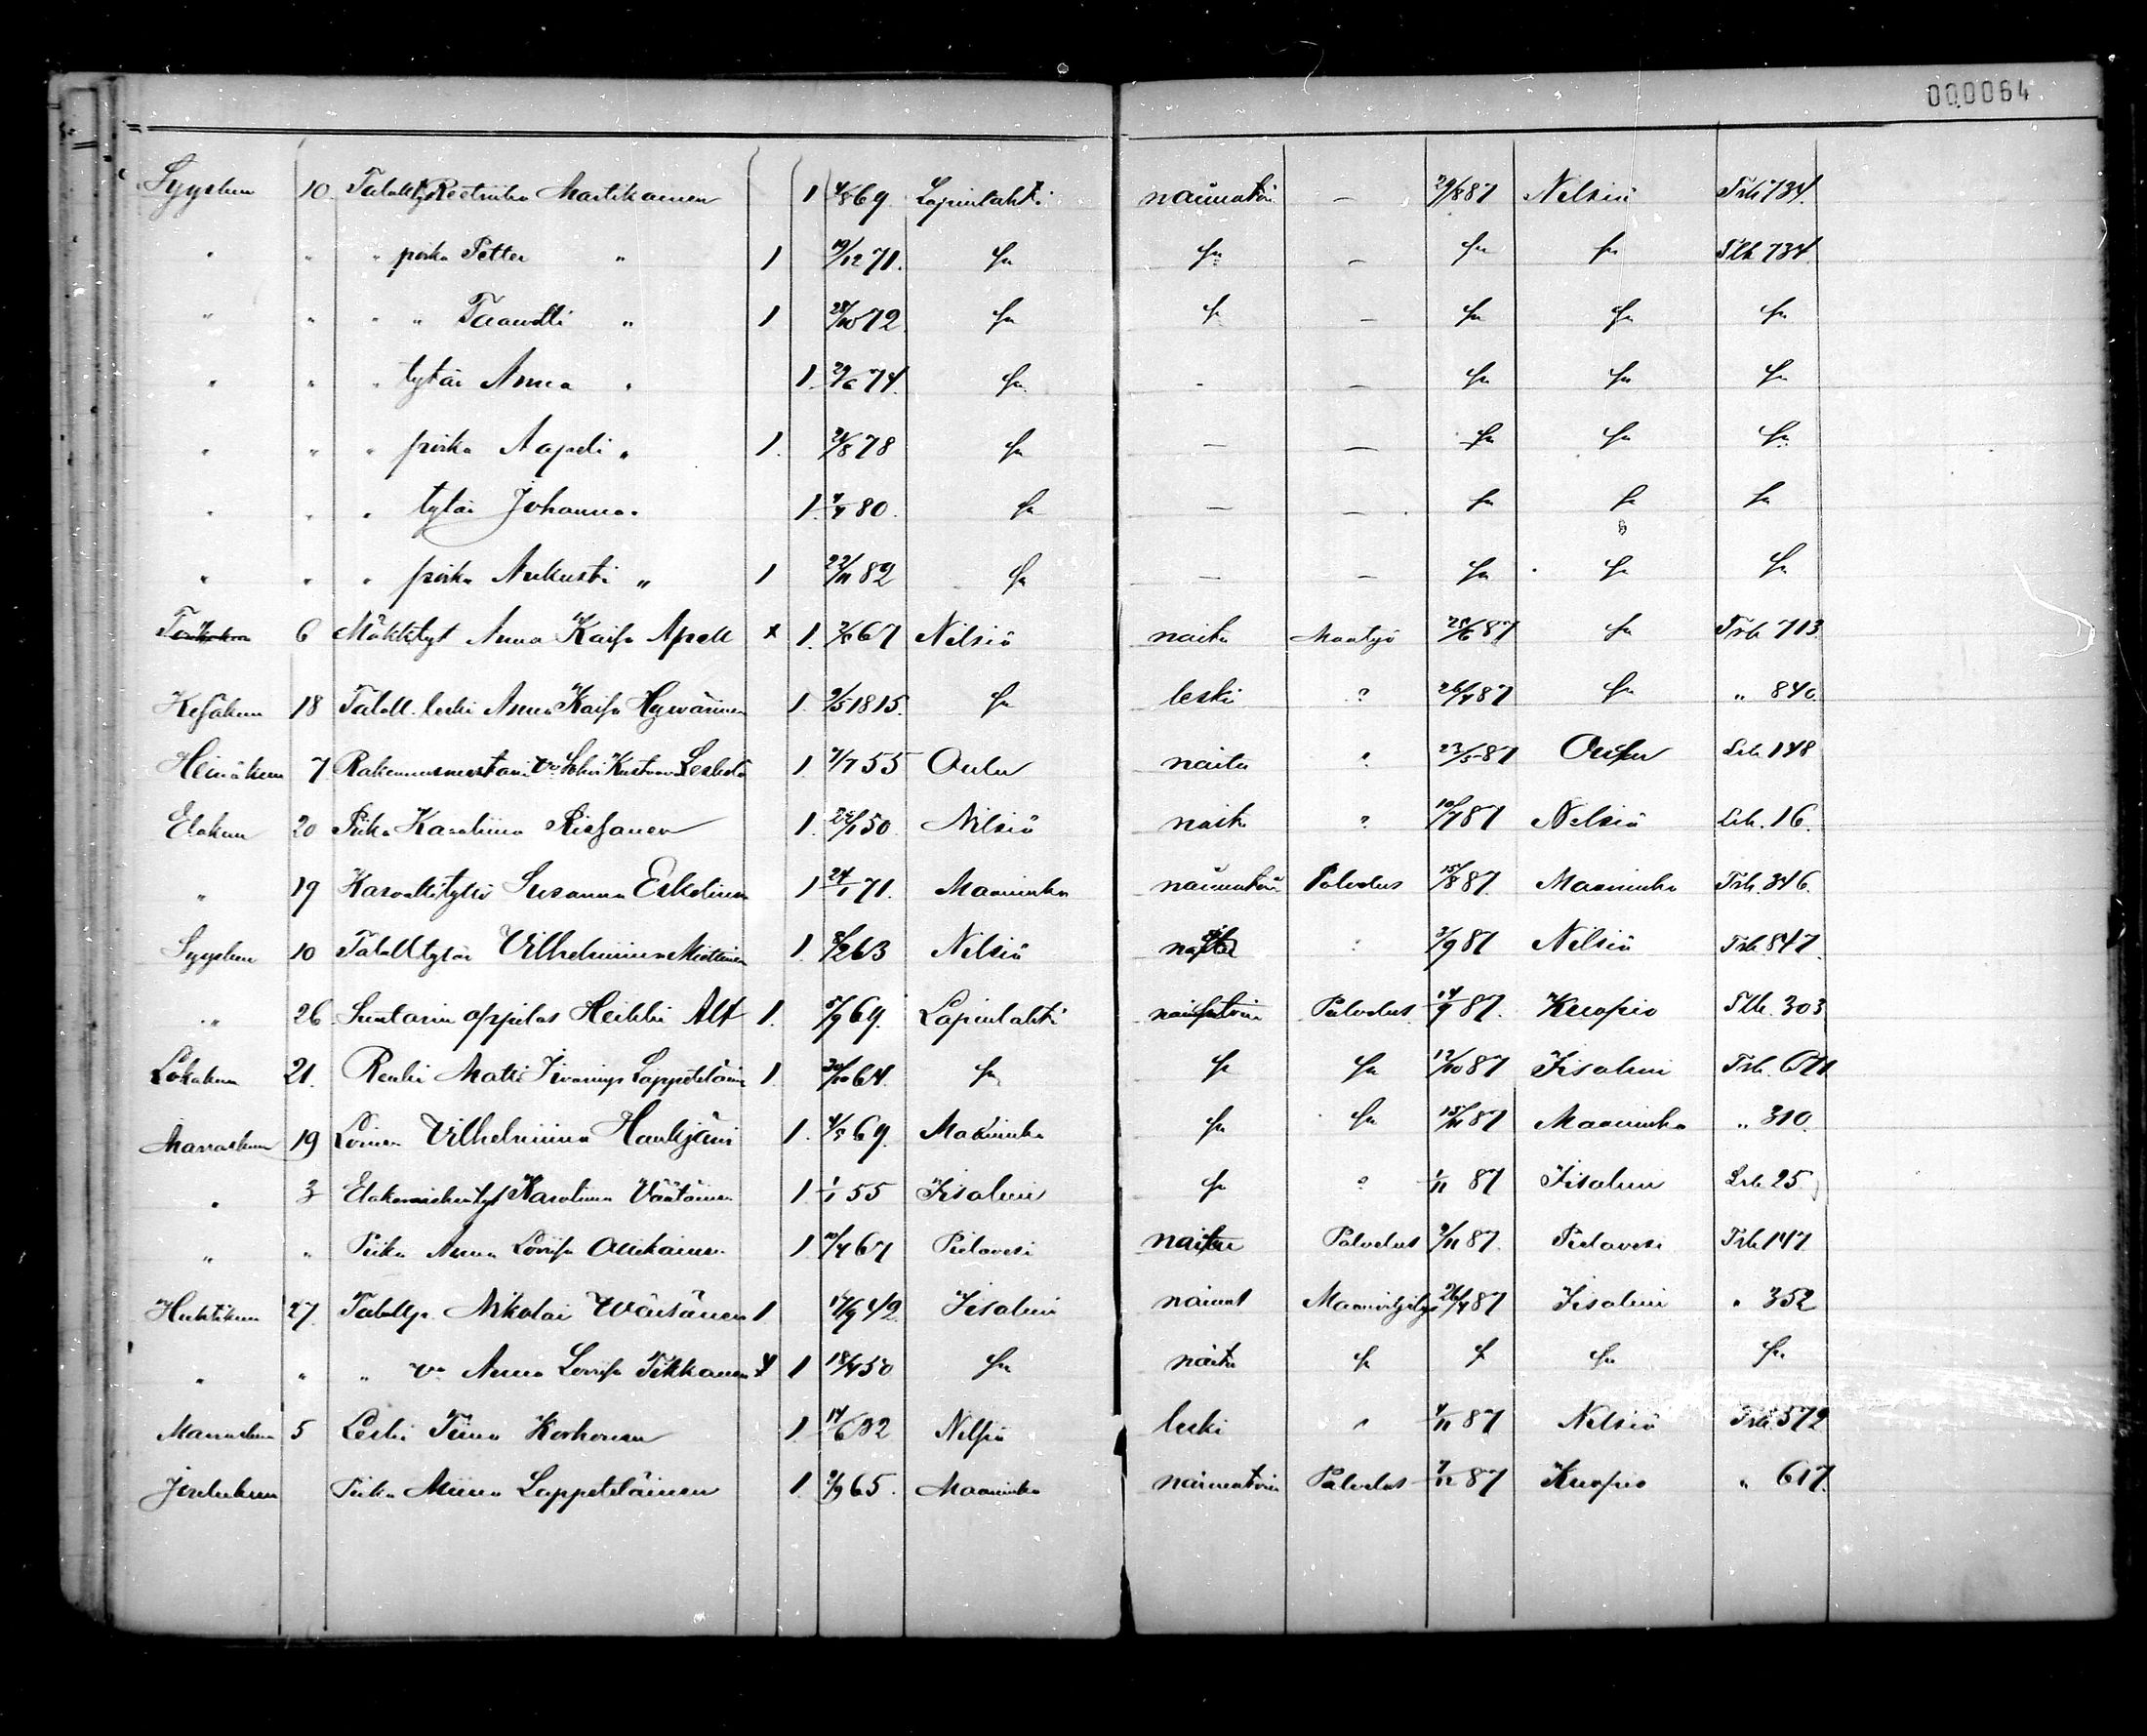 000064
Syyskuu 10. Talollty Reetriika Martikainen 1 4/8 69. Lapinlahti naimatöin — 29/8 87 Nilsiä Trk 734.
" " " poika Petter " 1 19/12 71. Sn Sn — Sn Sn Tlk 734
" " " " Taavetti " 1 28/10 72 Sn Sn — Sn Sn Sn
" " " tytär Anna " 1. 29/6 74. Sn - — Sn Sn Sn
" " " poika Aapeli " 1. 24/8 78 Sn — — Sn Sn Sn
" " " tytär Johanna " 1. 4/4 80. Sn — — Sn Sn Sn
" " " poika Aukusti " 1 22/11 82 Sn — — Sn Sn Sn
6 Mökktyt Anna Kaisa Apell x 1. 2/8 67 Nilsiä naitu Maatyö 28/6 87 Sn Trk 713
Kesäkuu 18 Taloll. leski Anna Kaisa Hyvärinen 1. 9/5 1815. Sn leski ? 26/4 87 Sn " 840.
Heinäkuu 7 Rakennusmestarin vo 1 7/7 55 Oulu naitu ? 23/5 87 Oulu Lrk 148
Elokuu 20 Piika Karoliina Rissanen 1. 24/1 50 Nilsiä naitu ? 10/7 87 Nilsiä Lrk. 16.
" 19 Kasvattitytö Susanna Eskelinen 1 24/1 71. Maaninka naimatöin Palvelus 15/8 87. Maaninka Trk. 346.
Syyskuu 10 Talolltytär Vilhelmiina Miettinen 1. 8/2 63 Nilsiä 3/9 87 Nilsiä Trk 847.
" 26. Suutarin oppilas Heikki Alt 1. 5/9 69. Lapinlahti naimatöin Palvelus 14/9 87. Kuopio Tlk. 303
Lokakuu 21. Renki Matti Lappeteläinen 1. 30/10 64. Sn Sn Sn 12/10 87 Iisalmi Trk. 671
Marraskuu 19 Loinen Vilhelmiina Haukjärvi 1. 4/5 69. Maaninka Sn Sn 15/11 87 Maaninka " 310.
" 3 Karoliina Väätäinen 1. 1/1 55 Iisalmi Sn ? 1/11 87 Iisalmi Lrk 25
" " Piika Anna Lovisa Ollikainen 1 10/4 67 Pielavesi naitu Palvelus 2/11 87. Pielavesi Trk 147
Huhtikuu 27. Talollp. Nikolai Wäisänen 1 17/9 42. Iisalmi naimat Maanviljelys 26/4 87 Iisalmi " 352
" " " vo Anna Lovisa Tikkanen x 1 18/4 50 Sn naitu Sn Sn Sn Sn
Marraskuu 5 Leski Tiina Korhonen 1. 14/6 32 Nilsiä leski " 4/11 87 Nilsiä Trk. 572
Joulukuu Piika Miina Lappeteläinen 1. 2/9 65. Maaninka naimatöin Palvelus 7/12 87 Kuopio " 617.